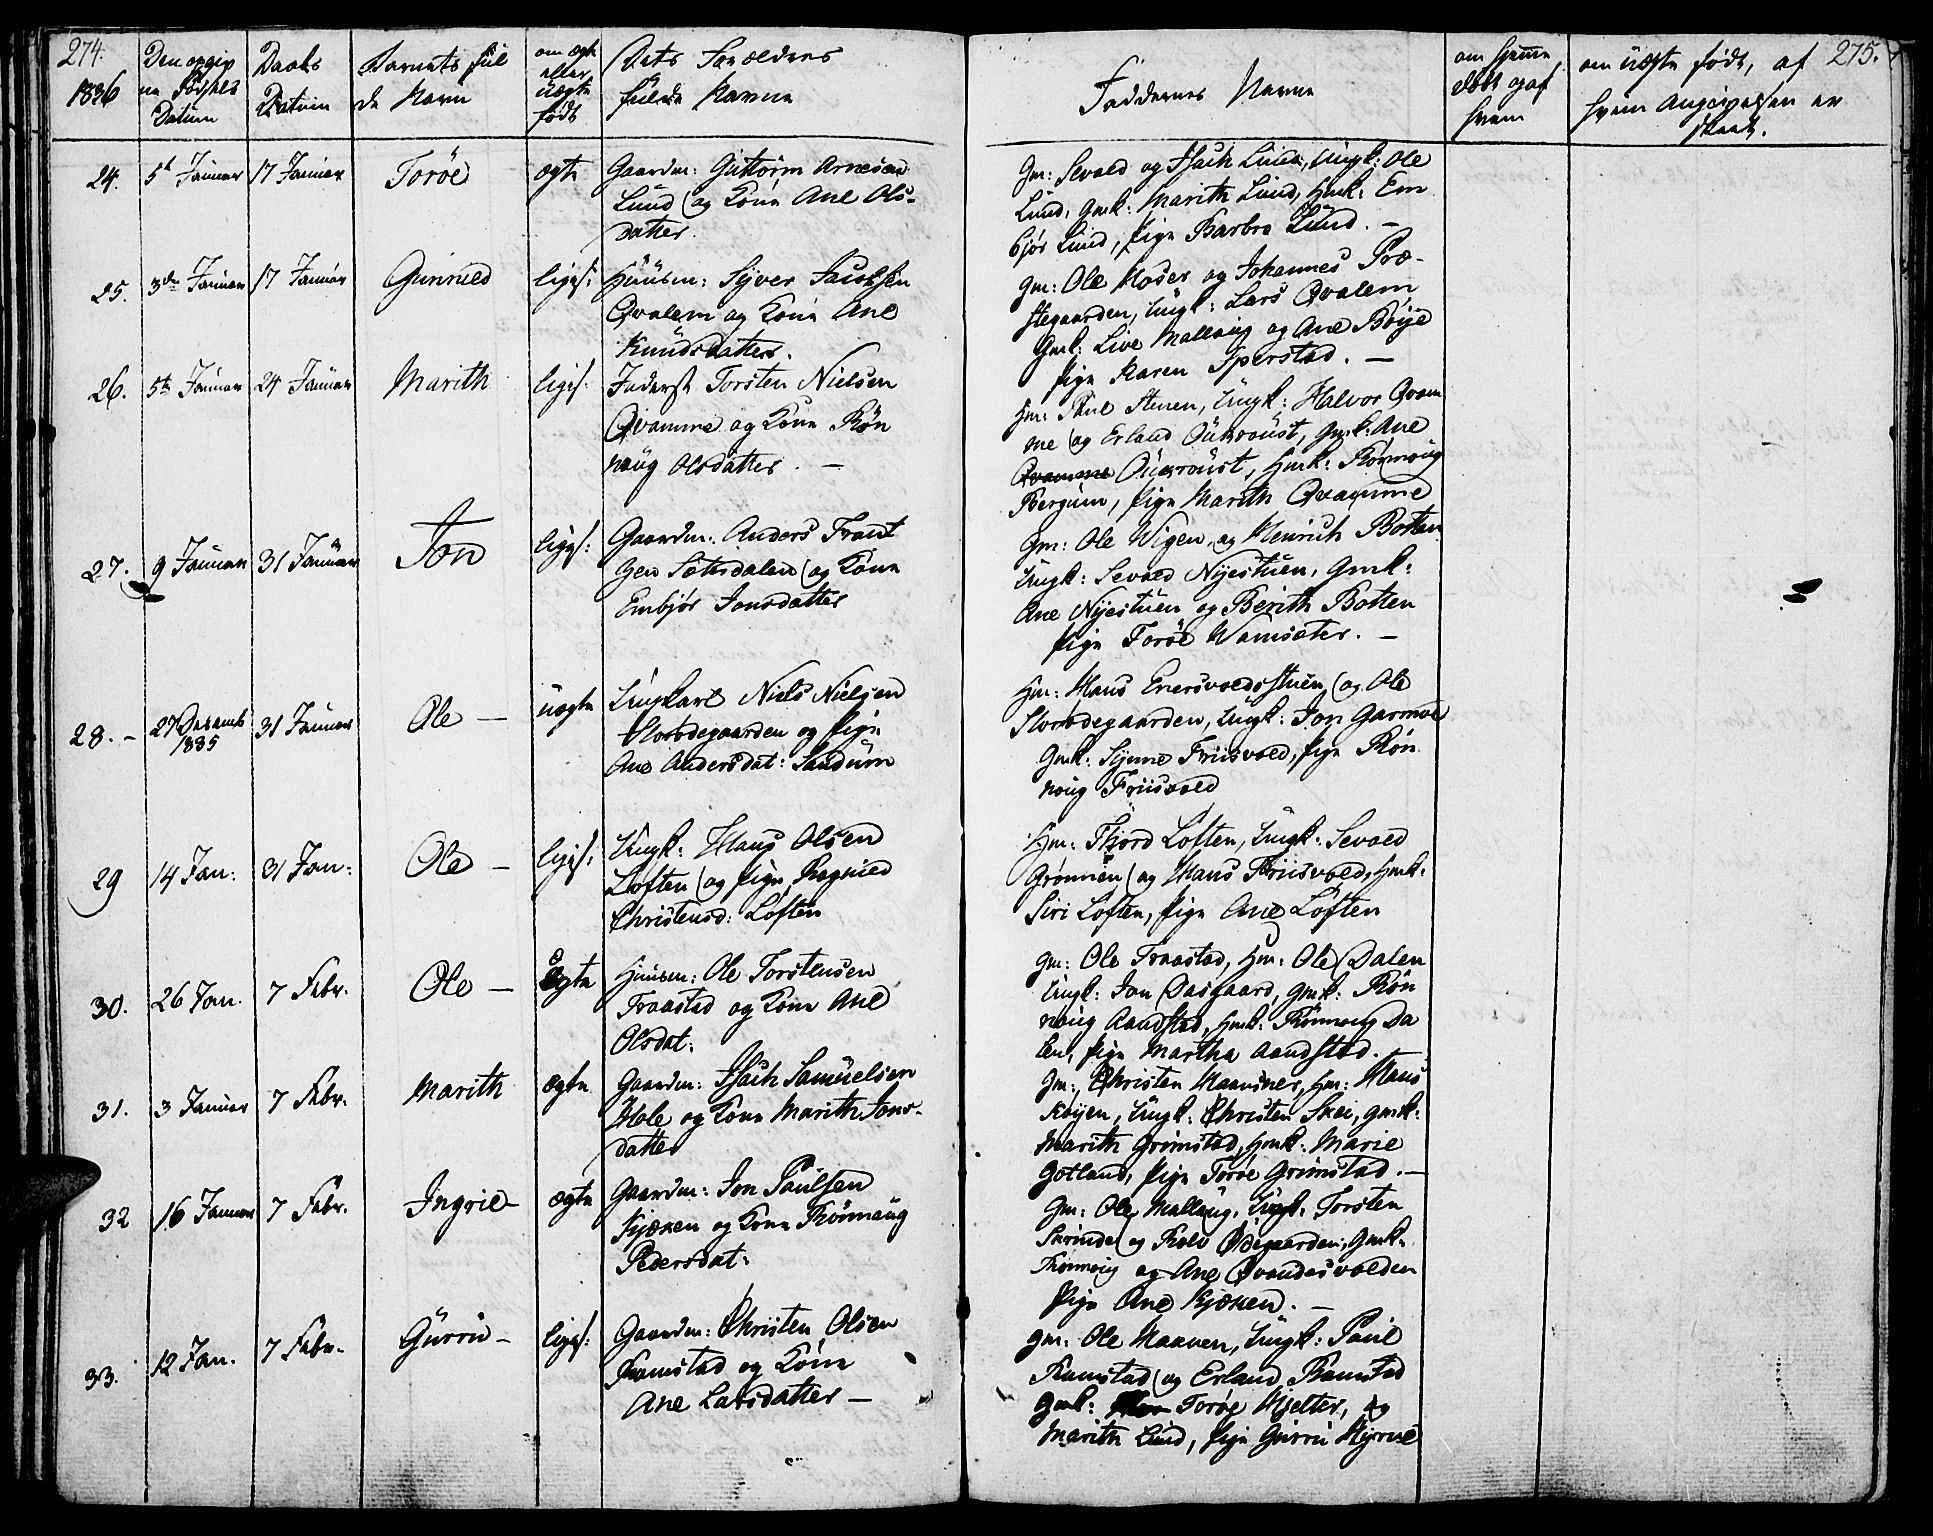 274.
1836
Den opgiv
ne Fødsels
Datum
Daabs
Datum
Barnets ful
de Navn
om ægte
eller
uægte
født
Dets Forældres
fulde Navne
24.
5t Januar
17 Januar
Toröe
ægte
Gaardm: Guttorm Arnesen
Lund og Kone Ane Ols-
datter.
25.
3de Januar
17 Januar
Gunnild
ligs:
Huusm: Syver Jacobsen
Qvalem og Kone Ane
Knudsdatter.
26.
5te Januar
24 Januar
Marith
ligs:
Inderst Torsten Nielsen
Qvamme og Kone Røn
naug Olsdatter. —
27.
9 Januar
31 Januar
Jon
ligs:
Gaardm: Anders Frant
zen Sætersdalen og Kone
Embjør Jonsdatter
28. -
27 Decemb
1835
31 Januar
Ole —
uægte
Ungkarl Niels Nielsen
Storødegaarden og Pige
Ane Andersdat: Sandum
29
14 Jan:
31 Jan:
Ole —
ligs:
Ungk: Hans Olsen
Loften og Pige Ragnild
Christensd: Loften
30.
26 Jan.
7 Febr.
Ole —
Ægte
Huusm: Ole Torstensen
Fraastad og Kone Ane
Olsdat:
31.
3 Januar
7 Febr.
Marith
ægte
Gaardm: Isach Samuelsen
Hole og Kone Marith Jons-
datter
32
16 Januar
7 Febr.
Ingrie-
ægte
Gaardm: Jon Paulsen
Kjæken og Kone Rønnaug
Pedersdat:
33.
12 Jan.
7 Febr.
Gurrie -
ligs:
Gaardm: Christen Olsen
Ramstad og Kone
Ane Larsdatter —
Faddernes Navne
om hjemme
døbt og af
hvem
om uægte født, af
hvem Angivelsen er
skeet.
275.
Gm: Sevald og Isach Lund, Ungk: Ole
Lund, Gmk: Marith Lund, Hmk: Em
bjør Lund, Pige Barbra Lund. —
Gm: Ole Moser og Johannes Præ-
stegaarden, Ungk: Lars Qvalem
Gmk: Live Mallaug og Ane Bøije
Pige Karen Sperstad. —
Hm: Paul Steen, Ungk: Halvor Qvam
me og Erland Öukroust, Gmk: Ane
Qvamme Öukroust, Hmk: Rønnoug
Bergum, Pige Marith Qvamme
Gm: Ole Wigen og Henrich Botten
Ungk: Sevald Nyestuen, Gmk:
Ane Nyestuen og Berith Botten
Pige Toröe Wamsæter. —
Hm: Hans Enersvoldsstuen og Ole
Storødegaarden, Ungk: Jon Garmoe
Gmk: Synne Friisvold, Pige Røn
noug Friisvold
Hm: Thord Loften, Ungk: Sevald
Grønnen og Hans Friisvold, Hmk:
Siri Loften, Pige Ane Loften
Gm: Ole Fraastad, Hm: Ole Dalen
Ungk: Jon Dasgaard, Gmk: Røn
noug Aandstad, Hmk: Rønnoug Da
len, Pige Martha Aandstad.
Gm: Christen Maursner, Hm: Hans
Køyen, Ungk: Christen Skei, Gmk:
Marith Grimstad, Hmk: Marie
Gotland, Pige Toröe Grimstad. —
Gm: Ole Mallaug, Ungk: Torsten
Skrinde og Rolv Ødegaarden, Gmk:
Rønnoug og Ane Qvandesvolden
Pige Ane Kjæken. —
Gm: Ole Haaven, Ungk: Paul
Ramstad og Erland Ramstad
Gmk: Toröe Hjelter, og
Marith Lund, Pige Gurri Hyrve